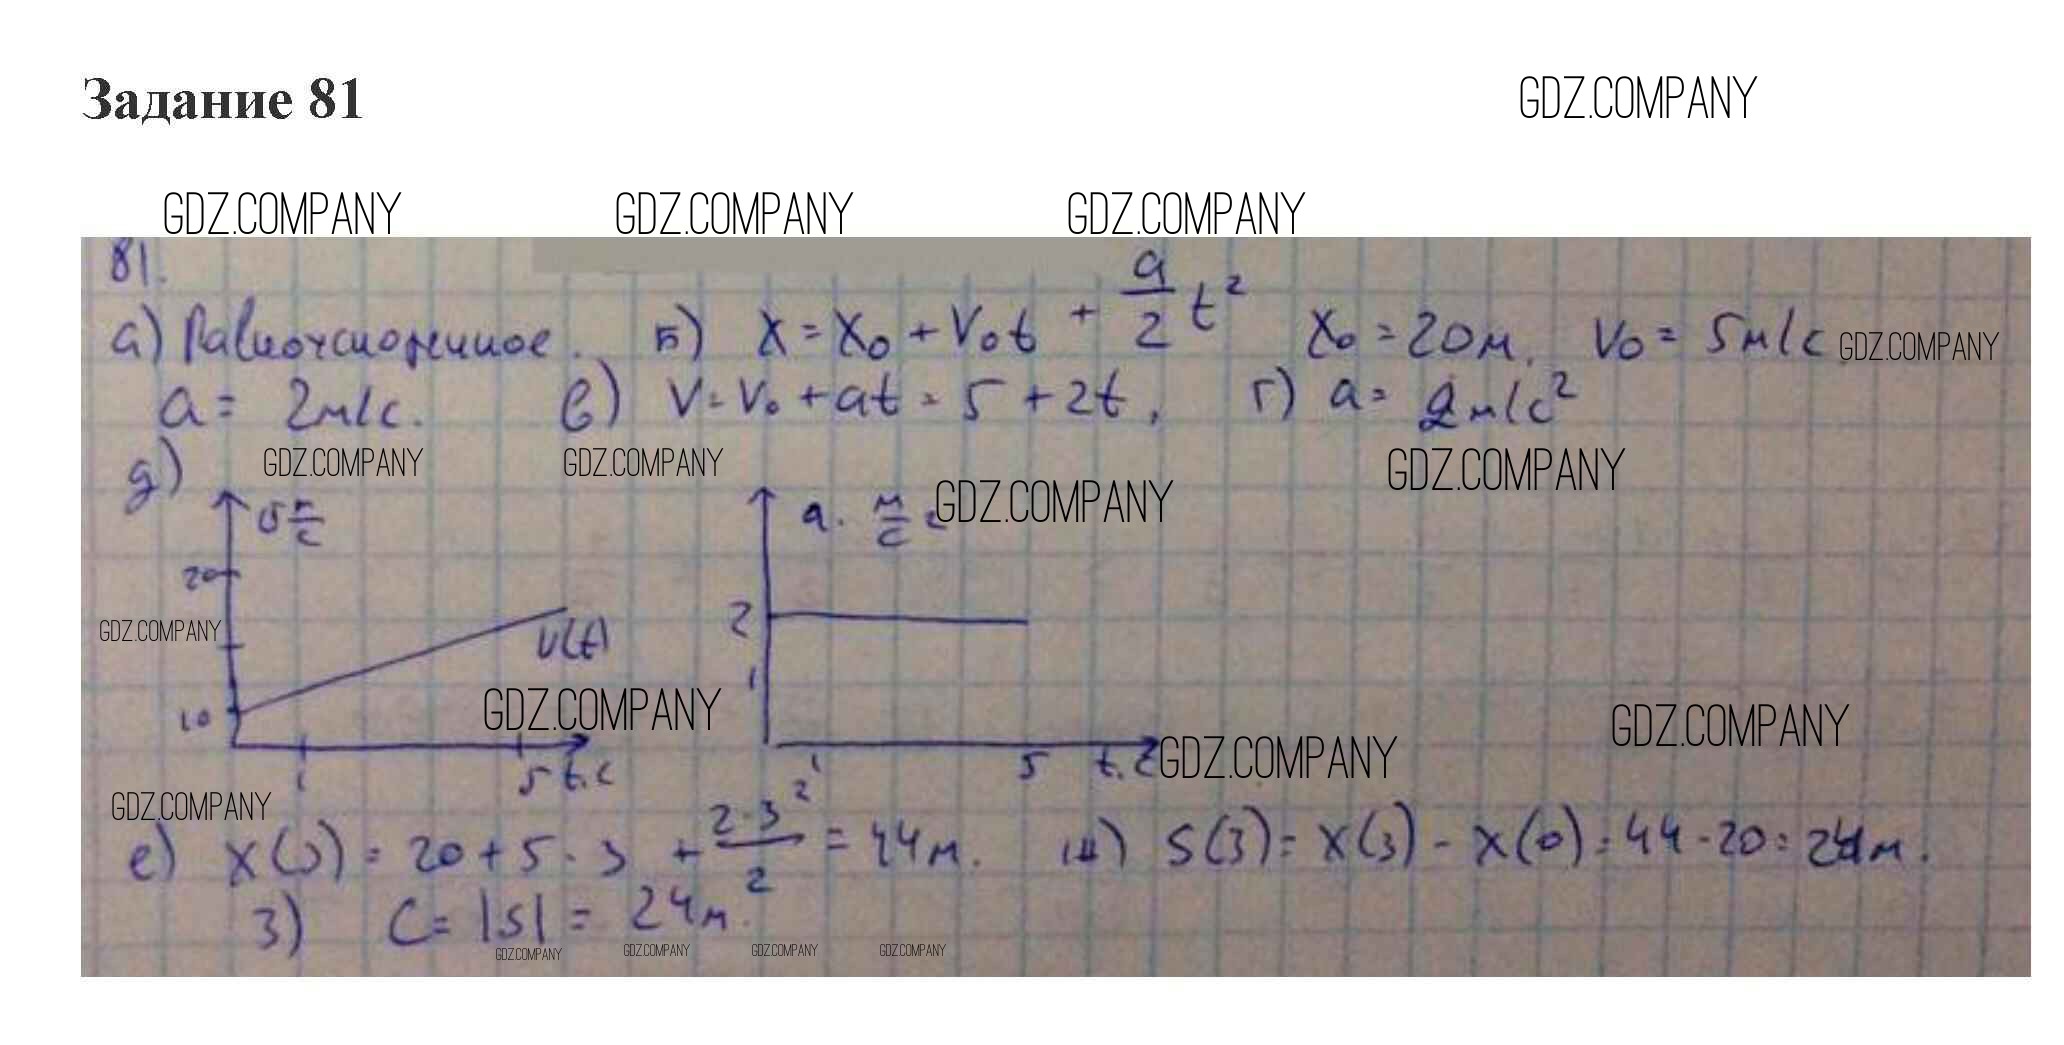 Задание 81
GDZ.COMPANY
GDZ.COMPANY GDZ.COMPANY GDZ.COMPANY
81.
а) Равноускоренное. Б) x = x₀ + v₀t + a/2 t² x₀ = 20м. v₀ = 5м/с GDZ.COMPANY
a = 2м/с. в) v = v₀ + at = 5 + 2t, г) a = 2м/с²
д) GDZ.COMPANY GDZ.COMPANY GDZ.COMPANY GDZ.COMPANY
υ м/с a. м/с²
20
GDZ.COMPANY 2
υ(t)
1
10 GDZ.COMPANY GDZ.COMPANY
GDZ.COMPANY
1 5 t.c 1 5 t.
GDZ.COMPANY
е) x(3) = 20 + 5 · 3 + 2·3²/2 = 44м. ж) S(3) = x(3) - x(0) = 44 - 20 = 24м.
З) C = |S| = 24м.
GDZ.COMPANY GDZ.COMPANY GDZ.COMPANY GDZ.COMPANY